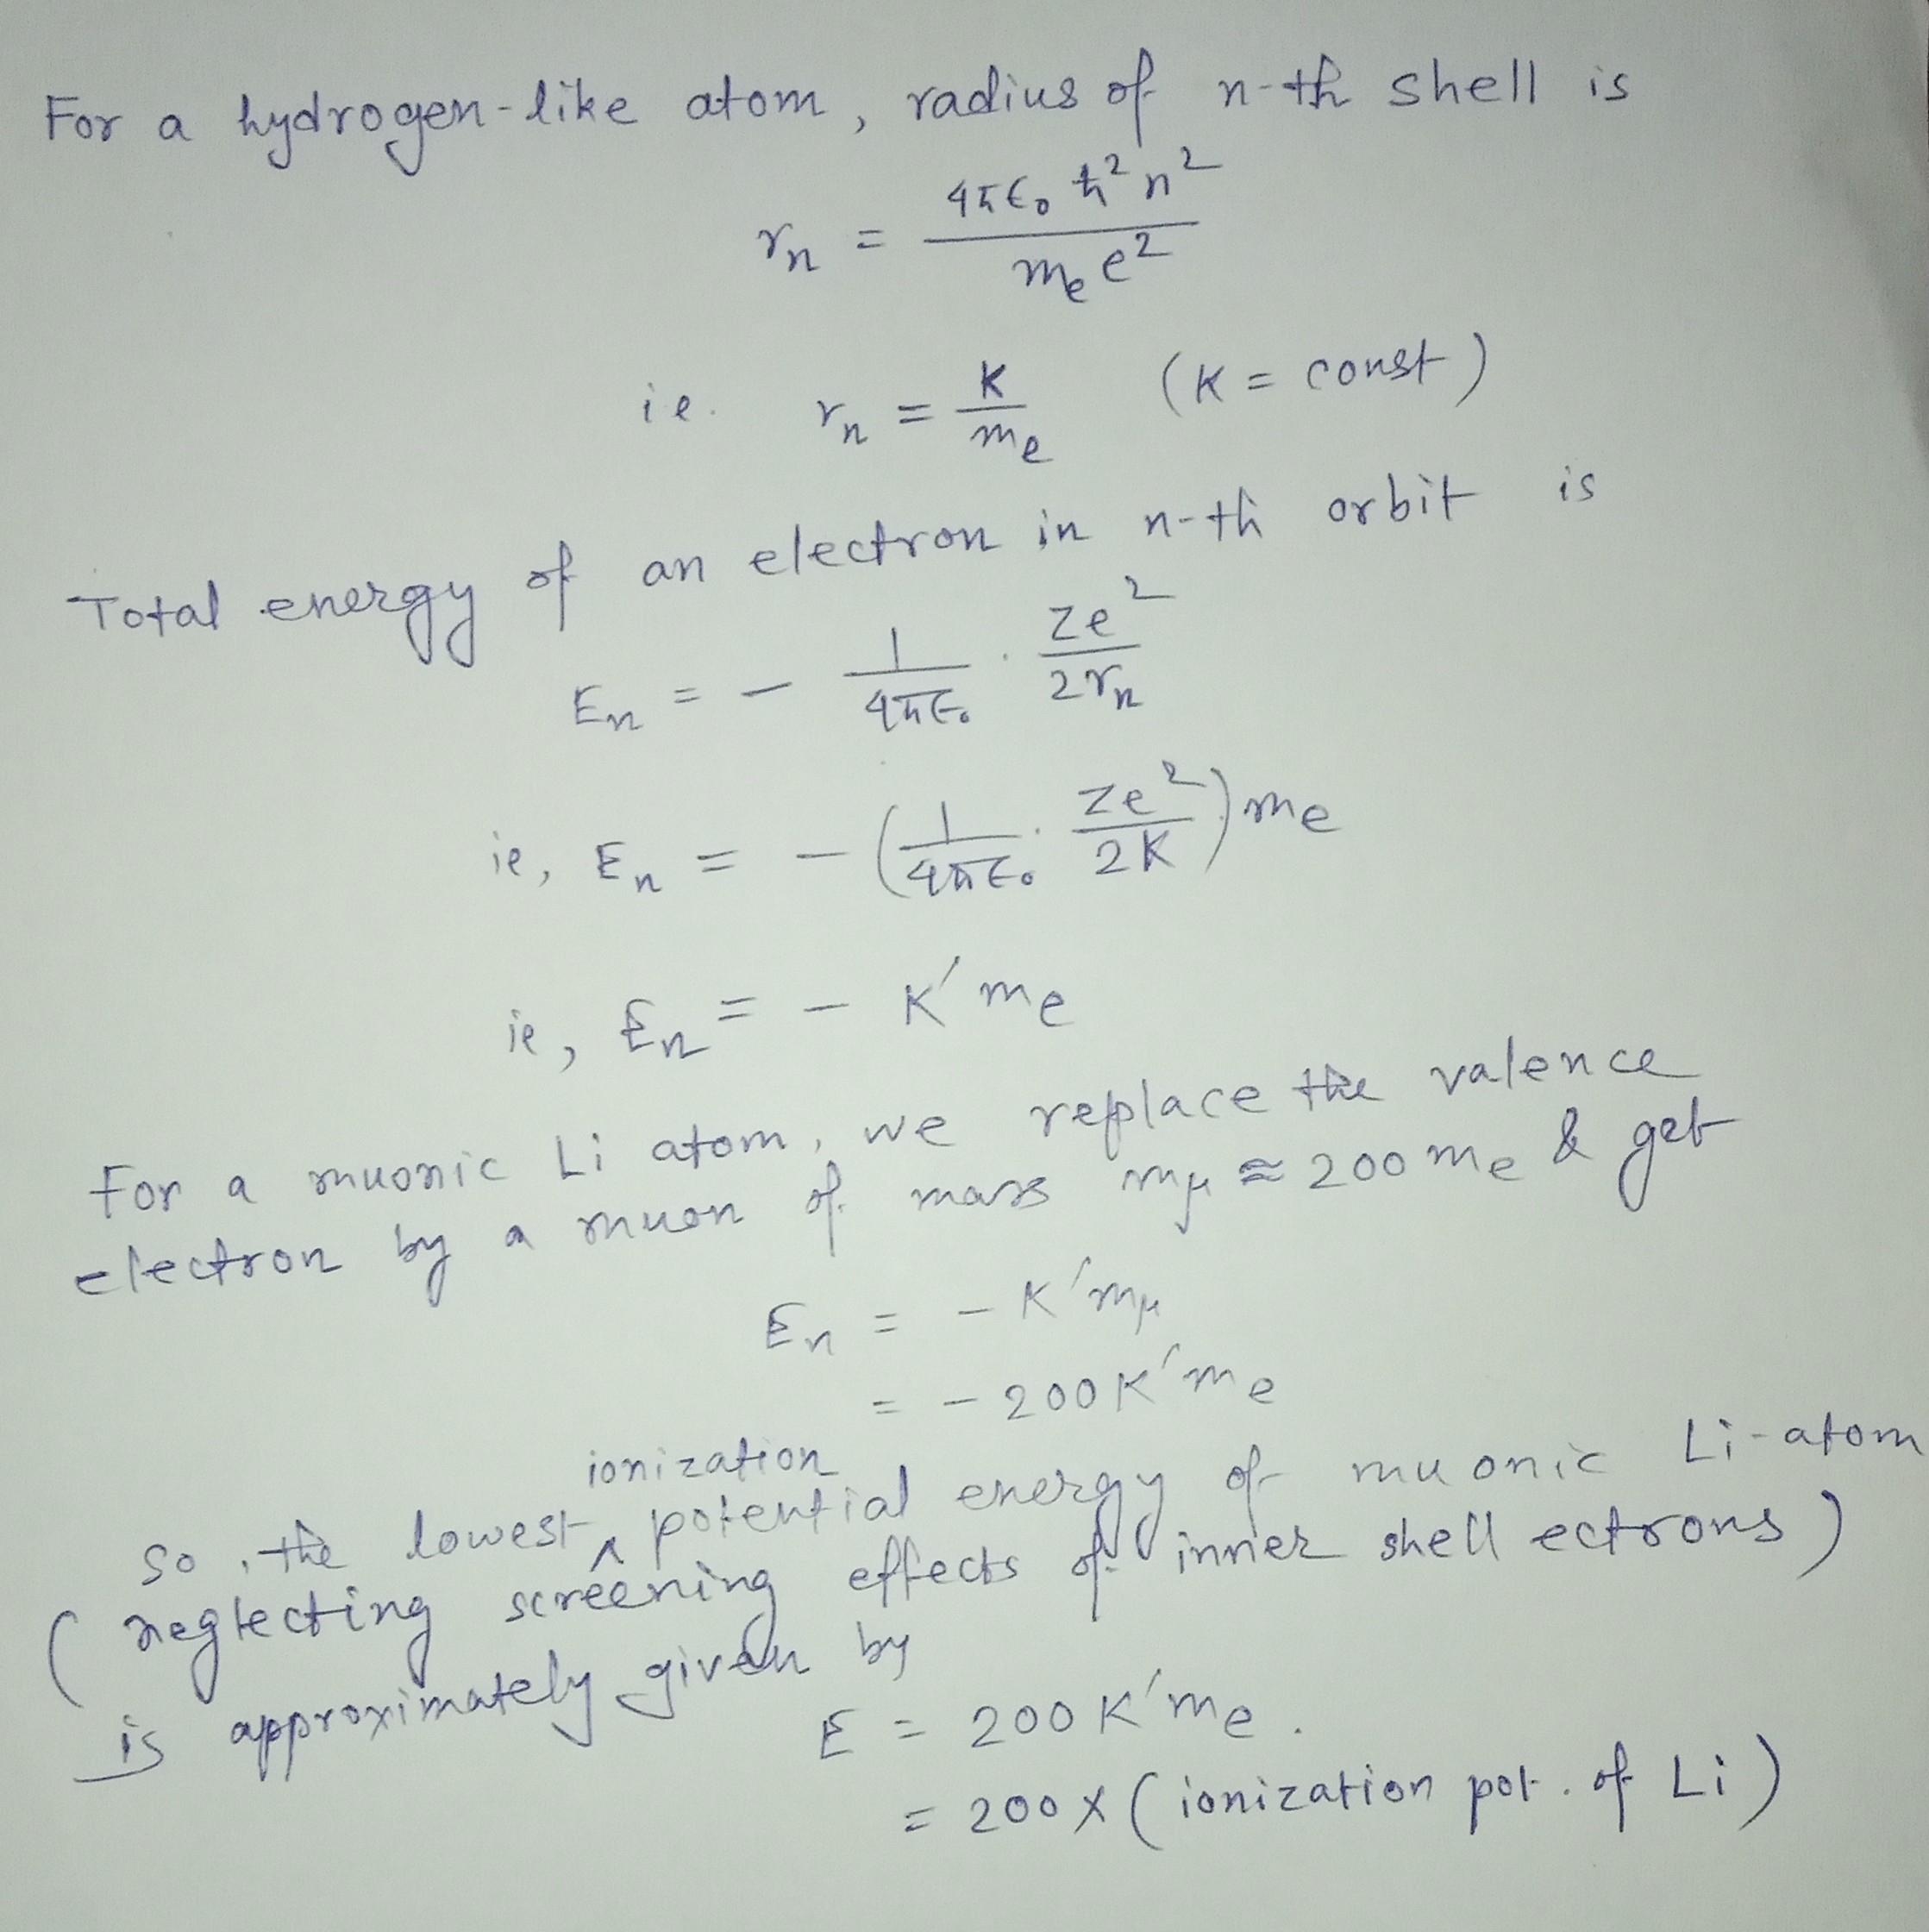 For a hydrogen-like atom, radius of n-th shell is
rn = 4πϵ₀ ħ² n² / me e²
ie. rn = K / me (K = const)
Total energy of an electron in n-th orbit is
En = - 1 / 4πϵ₀ . Ze² / 2rn
ie, En = - (1 / 4πϵ₀ . Ze² / 2K) me
ie, En = - K′ me
For a muonic Li atom, we replace the valence
electron by a muon of mass mμ ≈ 200 me & get
En = - K′ mμ
= - 200 K′ me
So, the lowest ionization potential energy of muonic Li-atom
(neglecting screening effects of inner shell ectrons)
is approximately given by
E = 200 K′ me.
= 200 X (ionization pot. of Li)